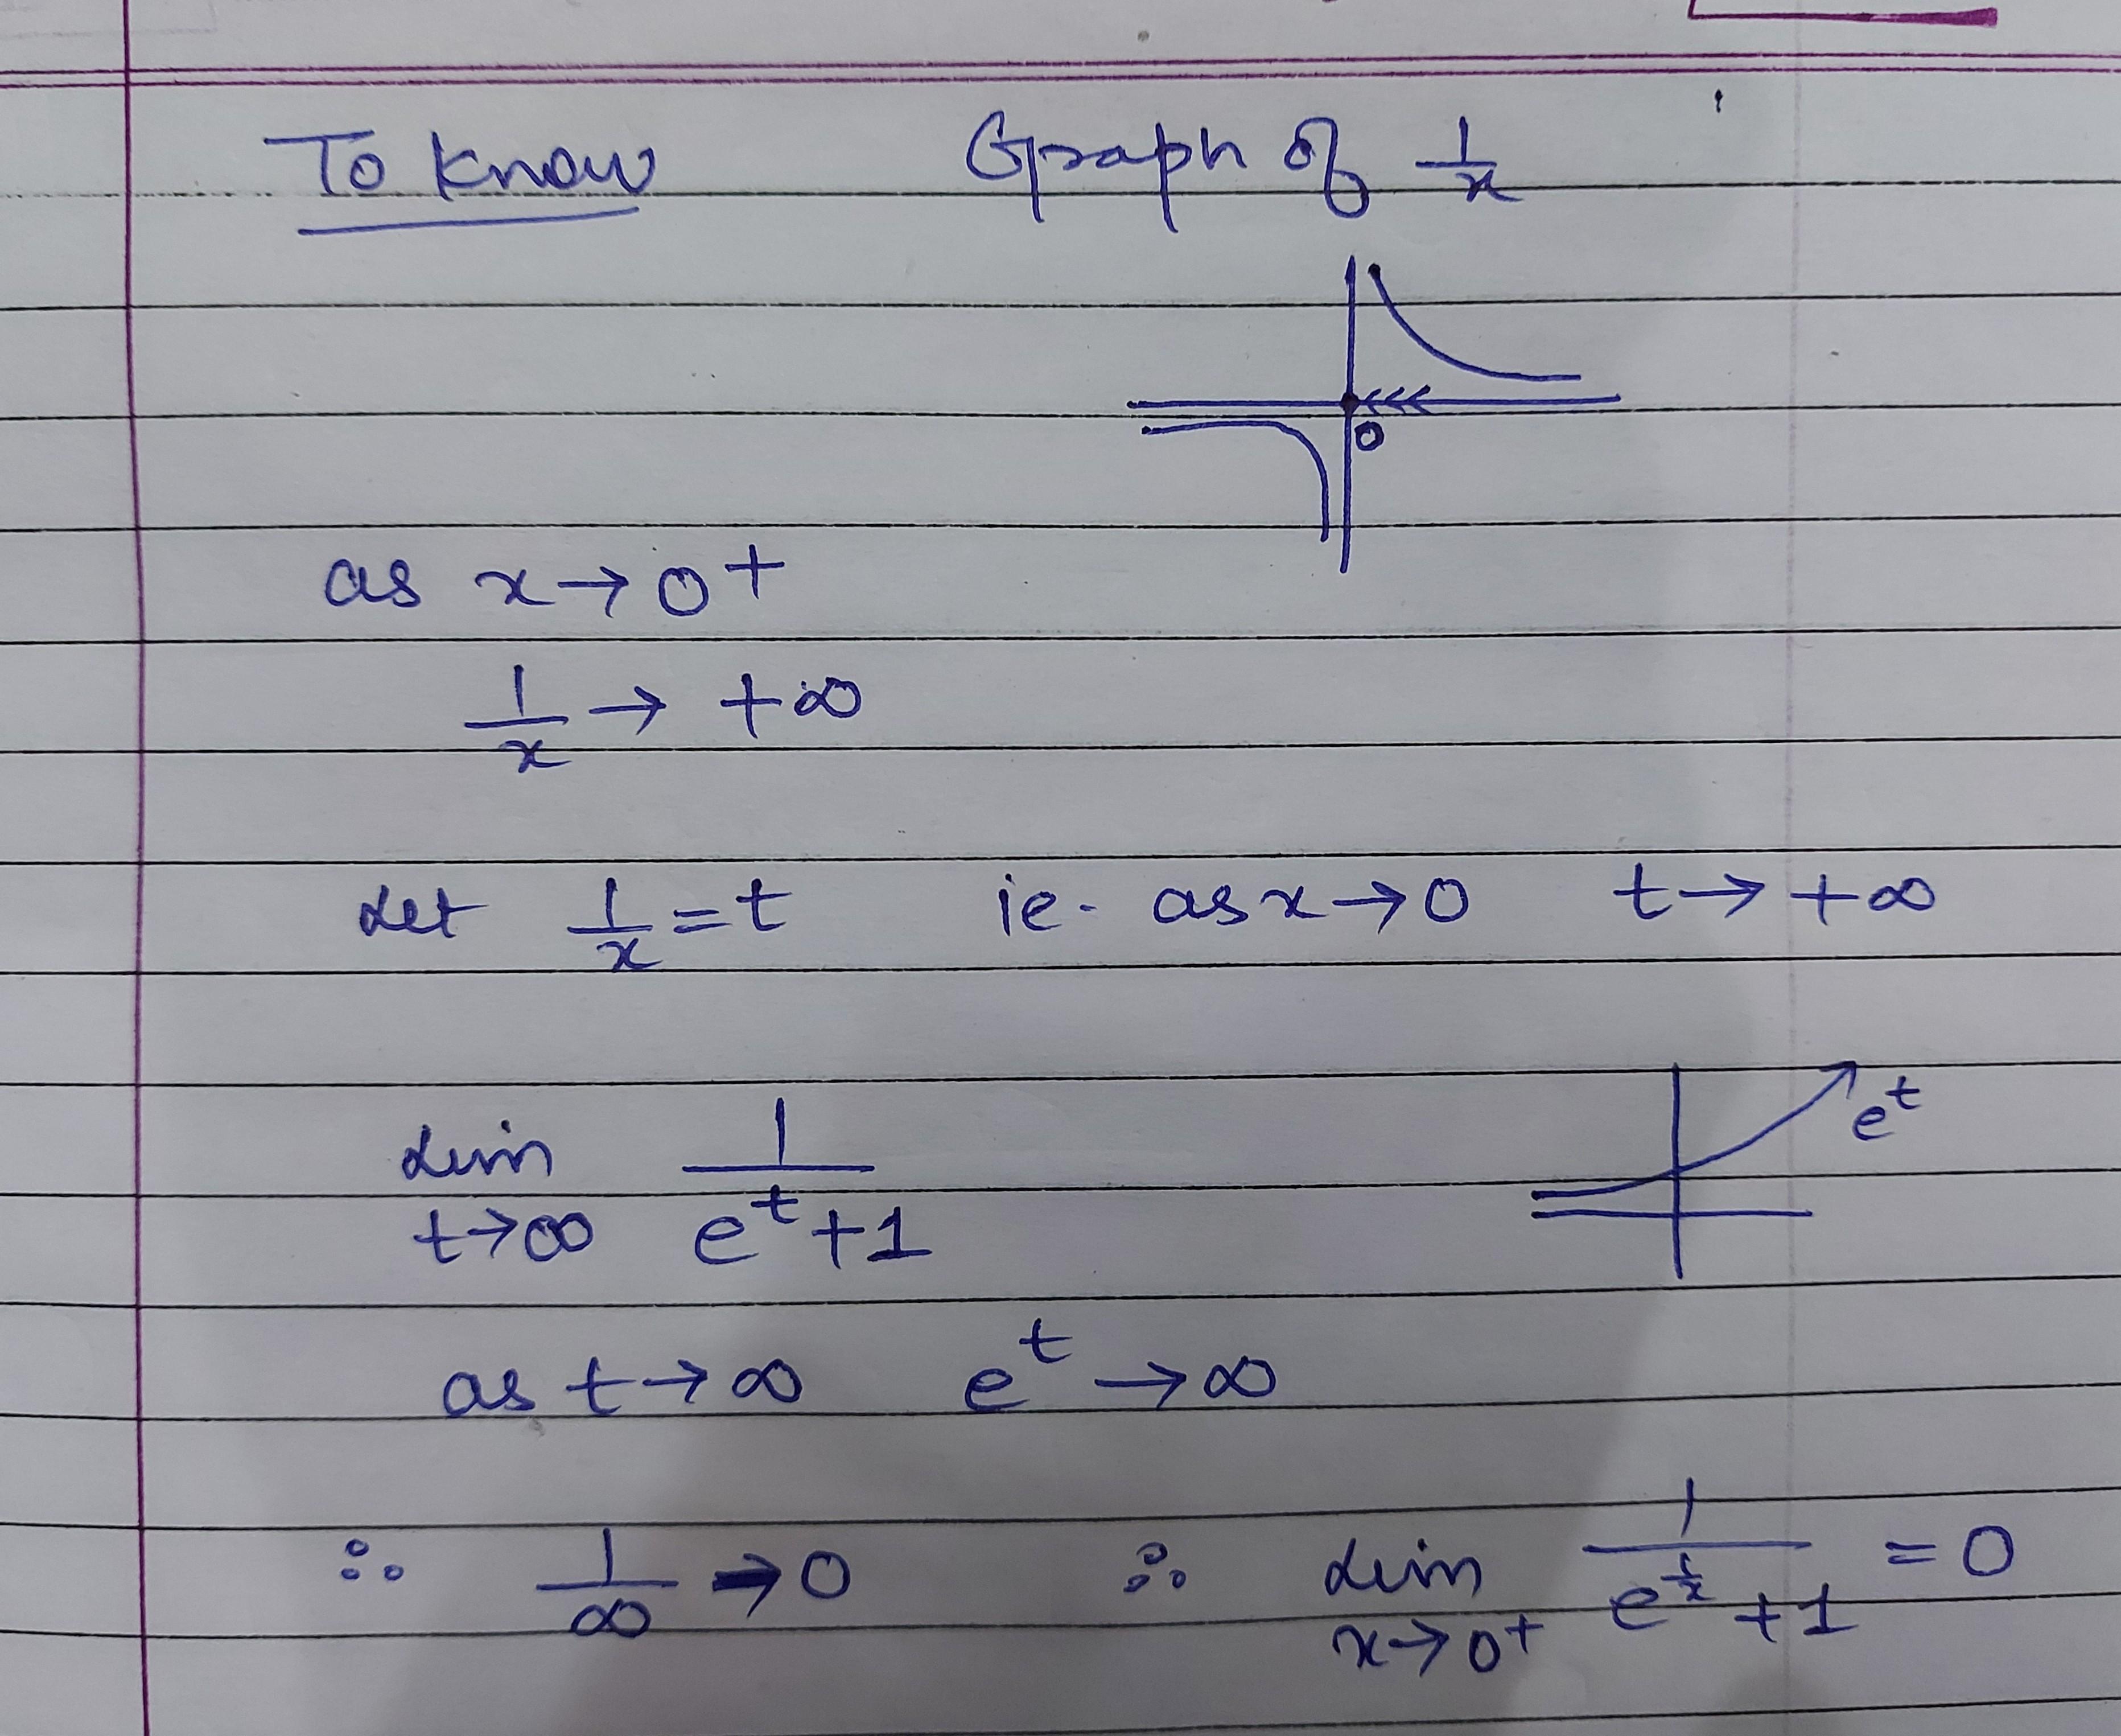 To know Graph of 1/x
0
as x → 0+
1/x → +∞
Let 1/x = t ie. as x → 0 t → +∞
e^t
Lim t→∞ 1/(e^t + 1)
as t → ∞ e^t → ∞
∴ 1/∞ → 0 ∴ Lim x→0+ 1/(e^(1/x) + 1) = 0